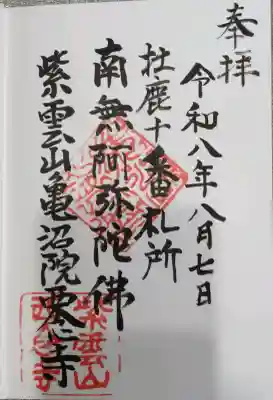 奉拝
令和八年八月七日
牡鹿十番札所
南無阿弥陀佛
紫雲山亀沼院西念寺